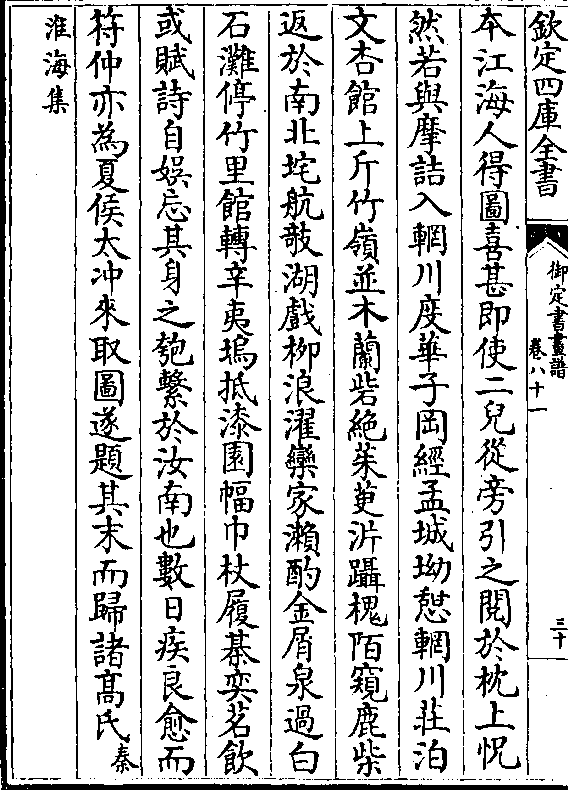 欽定四庫全書
御定書畫譜
卷八十一
三十
本江海人得圖喜甚即使二兒從旁引之閱於枕上怳
然若與摩詰入輞川度華子岡經孟城坳憩輞川莊泊
文杏館上斤竹嶺並木蘭砦絶茱萸沜躡槐陌窺鹿柴
返於南北垞航攲湖戲柳浪濯欒家瀨酌金屑泉過白
石灘停竹里館轉辛夷塢抵漆園幅巾杖屨棊奕茗飲
或賦詩自娛忘其身之匏繫於汝南也數日疾良愈而
符仲亦為夏侯太冲來取圖遂題其末而歸諸髙氏秦
淮海集